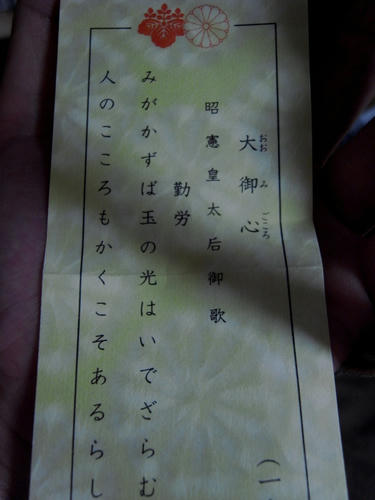 大御心
おおみごころ
（一
昭憲皇太后御歌
勤労
みがかずば玉の光はいでざらむ
人のこころもかくこそあるらし